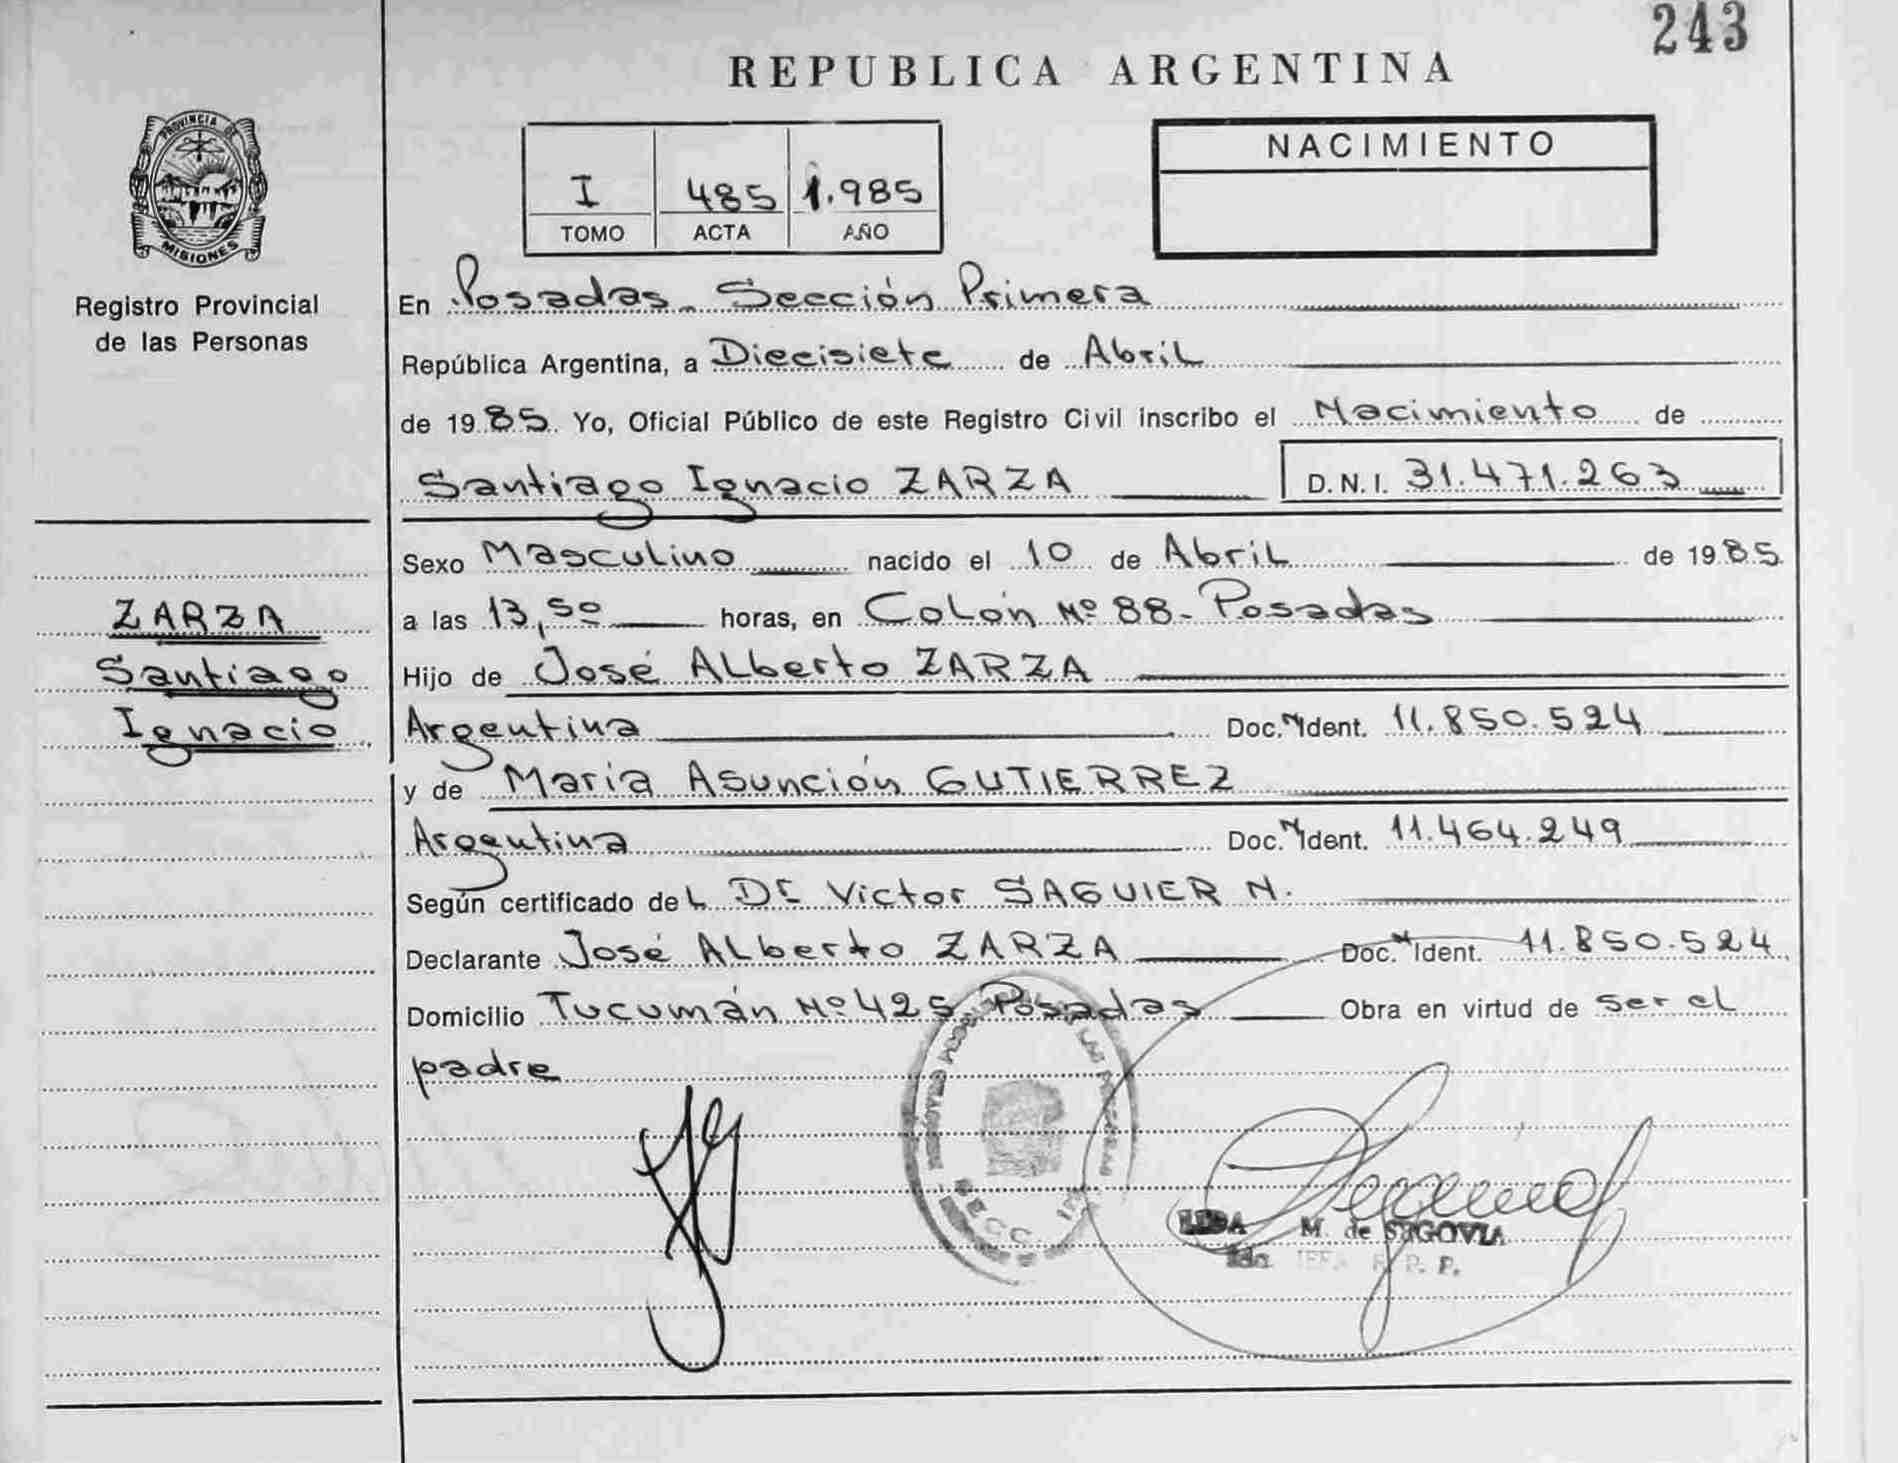 243
REPUBLICA ARGENTINA
PROVINCIA DE
MISIONES
Registro Provincial
de las Personas
I 485 1.985
TOMO ACTA AÑO
NACIMIENTO
En Posadas - Sección Primera
República Argentina, a Diecisiete de Abril
de 1985 Yo, Oficial Público de este Registro Civil inscribo el Nacimiento de
Santiago Ignacio ZARZA D.N.I. 31.471.263
Sexo Masculino nacido el 10 de Abril de 1985
a las 13,50 horas, en Colón Nº 88 - Posadas
Hijo de José Alberto ZARZA
Argentina Doc. Ident. 11.850.524
y de María Asunción GUTIERREZ
Argentina Doc. Ident. 11.464.249
Según certificado del Dr Victor SAGUIER N.
Declarante José Alberto ZARZA Doc. Ident. 11.850.524
Domicilio Tucumán Nº 425 Posadas Obra en virtud de ser el
padre
ZARZA
Santiago
Ignacio
SECC.
LIDA M. de SEGOVIA
R. P. P.